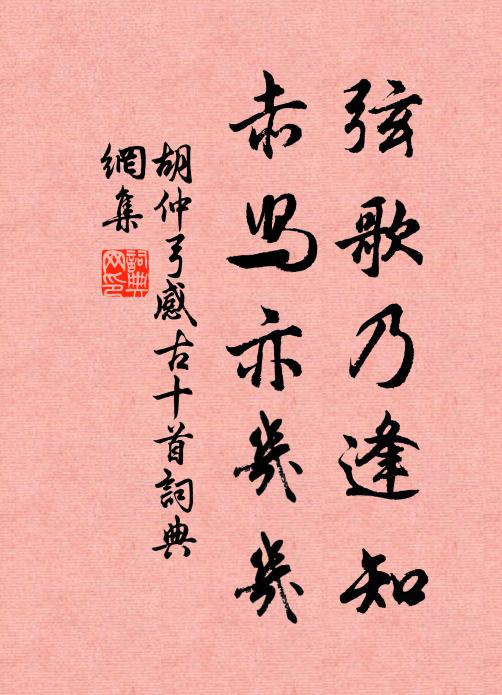 弦歌乃逢知
赤舄亦几几
胡仲弓感古十首詞典
網集
詞典
网印